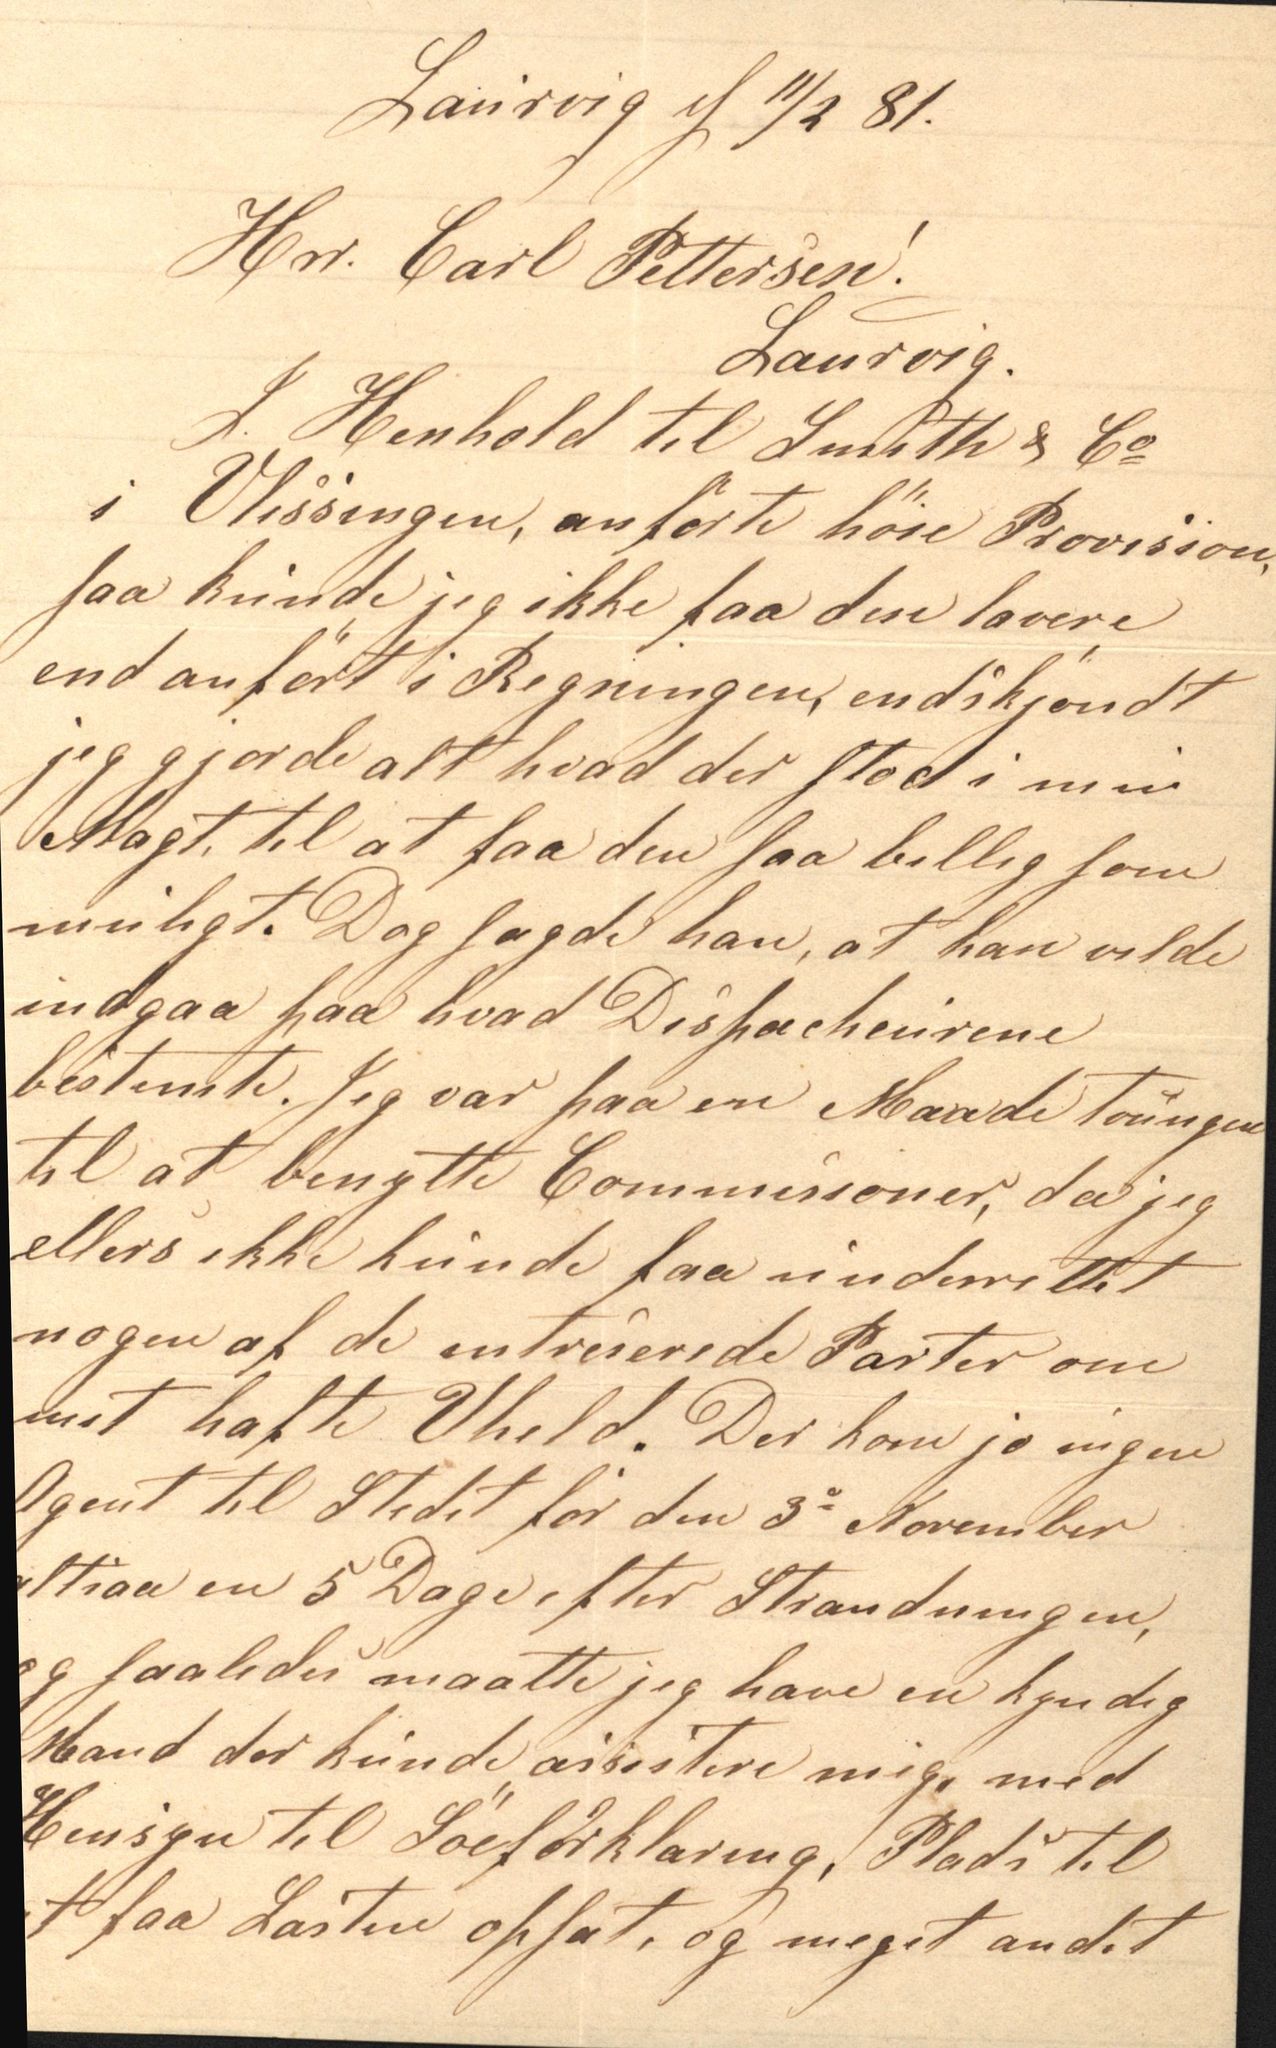 Laurvig d 11/2 81.
Hrr. Carl Pettersen!
Laurvig.
I Henhold til Smith & Co
i Vlissingen, anförte höie Provision,
saa kunde jeg ikke faa den lavere
end anfört i Regningen, endskjöndt
jeg gjorde alt hvad der stod i min
Magt, til at faa den saa billig som
muligt. Dog sagde han, at han vilde
indgaa paa hvad Dispacheurene
bestemte. Jeg var paa en Maade tvungen
til at benytte Commissioner, da jeg
ellers ikke kunde faa underrettet
nogen af de intreserede Parter om
mit hafte Uheld. Der kom jo ingen
Agent til Stedet för den 3o November
altsaa en 5 Dage efter Strandningen,
og saaledes maatte jeg have en kyndig
Mand der kunde assistere mig, med
Hensyn til Söeförklaring, Plads til
at faa Lasten opsat, og meget andet